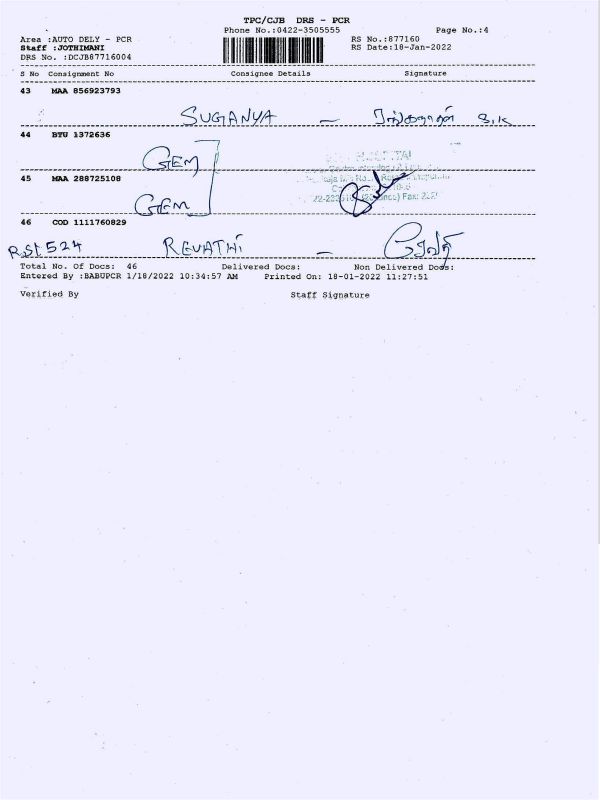 TPC/CJB DRS - PCR
Phone No.:0422-3505555 Page No.:4
Area :AUTO DELY - PCR RS No.:877160
Staff :JOTHIMANI RS Date:18-Jan-2022
DRS No. :DCJB87716004
S No Consignment No Consignee Details Signature
43 MAA 856923793
SUGANYA -
44 BTU 1372636
GEM
45 MAA 288725108
GEM
46 COD 1111760829
RSI 524 REVATHI - ரேவதி
Total No. Of Docs: 46 Delivered Docs: Non Delivered Docs:
Entered By :BABUPCR 1/18/2022 10:34:57 AM Printed On: 18-01-2022 11:27:51
Verified By Staff Signature